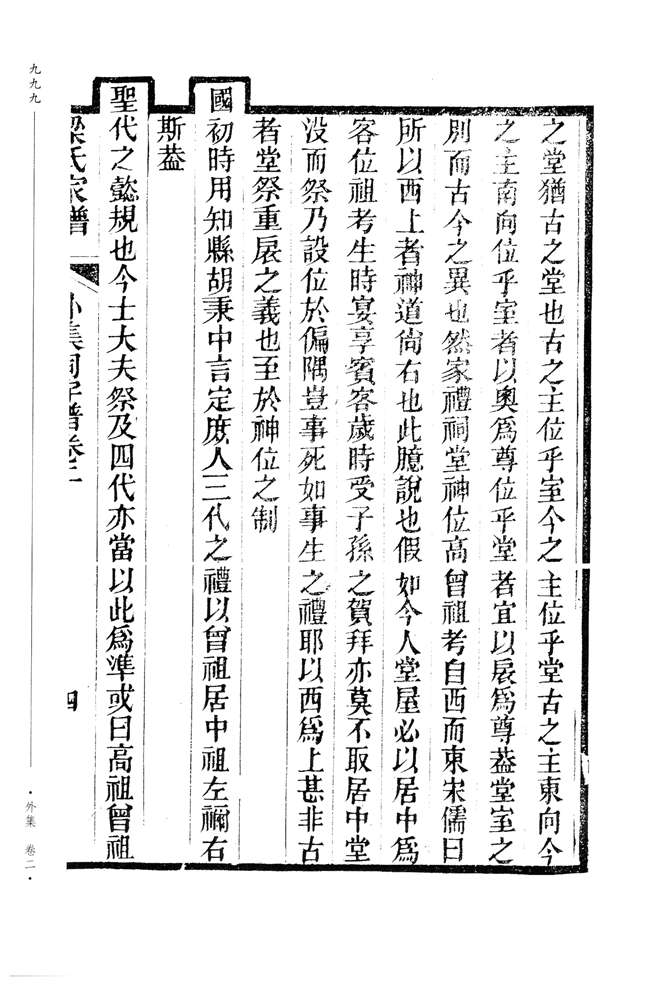 之堂猶古之堂也古之主位乎室今之主位乎堂古之主東向今
之主南向位乎室者以奧爲尊位乎堂者宜以扆爲尊葢堂室之
別而古今之異也然家禮祠堂神位高曾祖考自西而東宋儒曰
所以西上者神道尙右也此臆說也假如今人堂屋必以居中爲
客位祖考生時宴享賓客歲時受子孫之賀拜亦莫不取居中堂
没而祭乃設位於偏隅豈事死如事生之禮耶以西爲上甚非古
者堂祭重扆之義也至於神位之制
國初時用知縣胡秉中言定庶人三代之禮以曾祖居中祖左禰右
斯葢
聖代之懿規也今士大夫祭及四代亦當以此爲準或曰高祖曾祖
梁氏家譜
外集祠宇譜卷二
四
九九九
·外集 卷二·